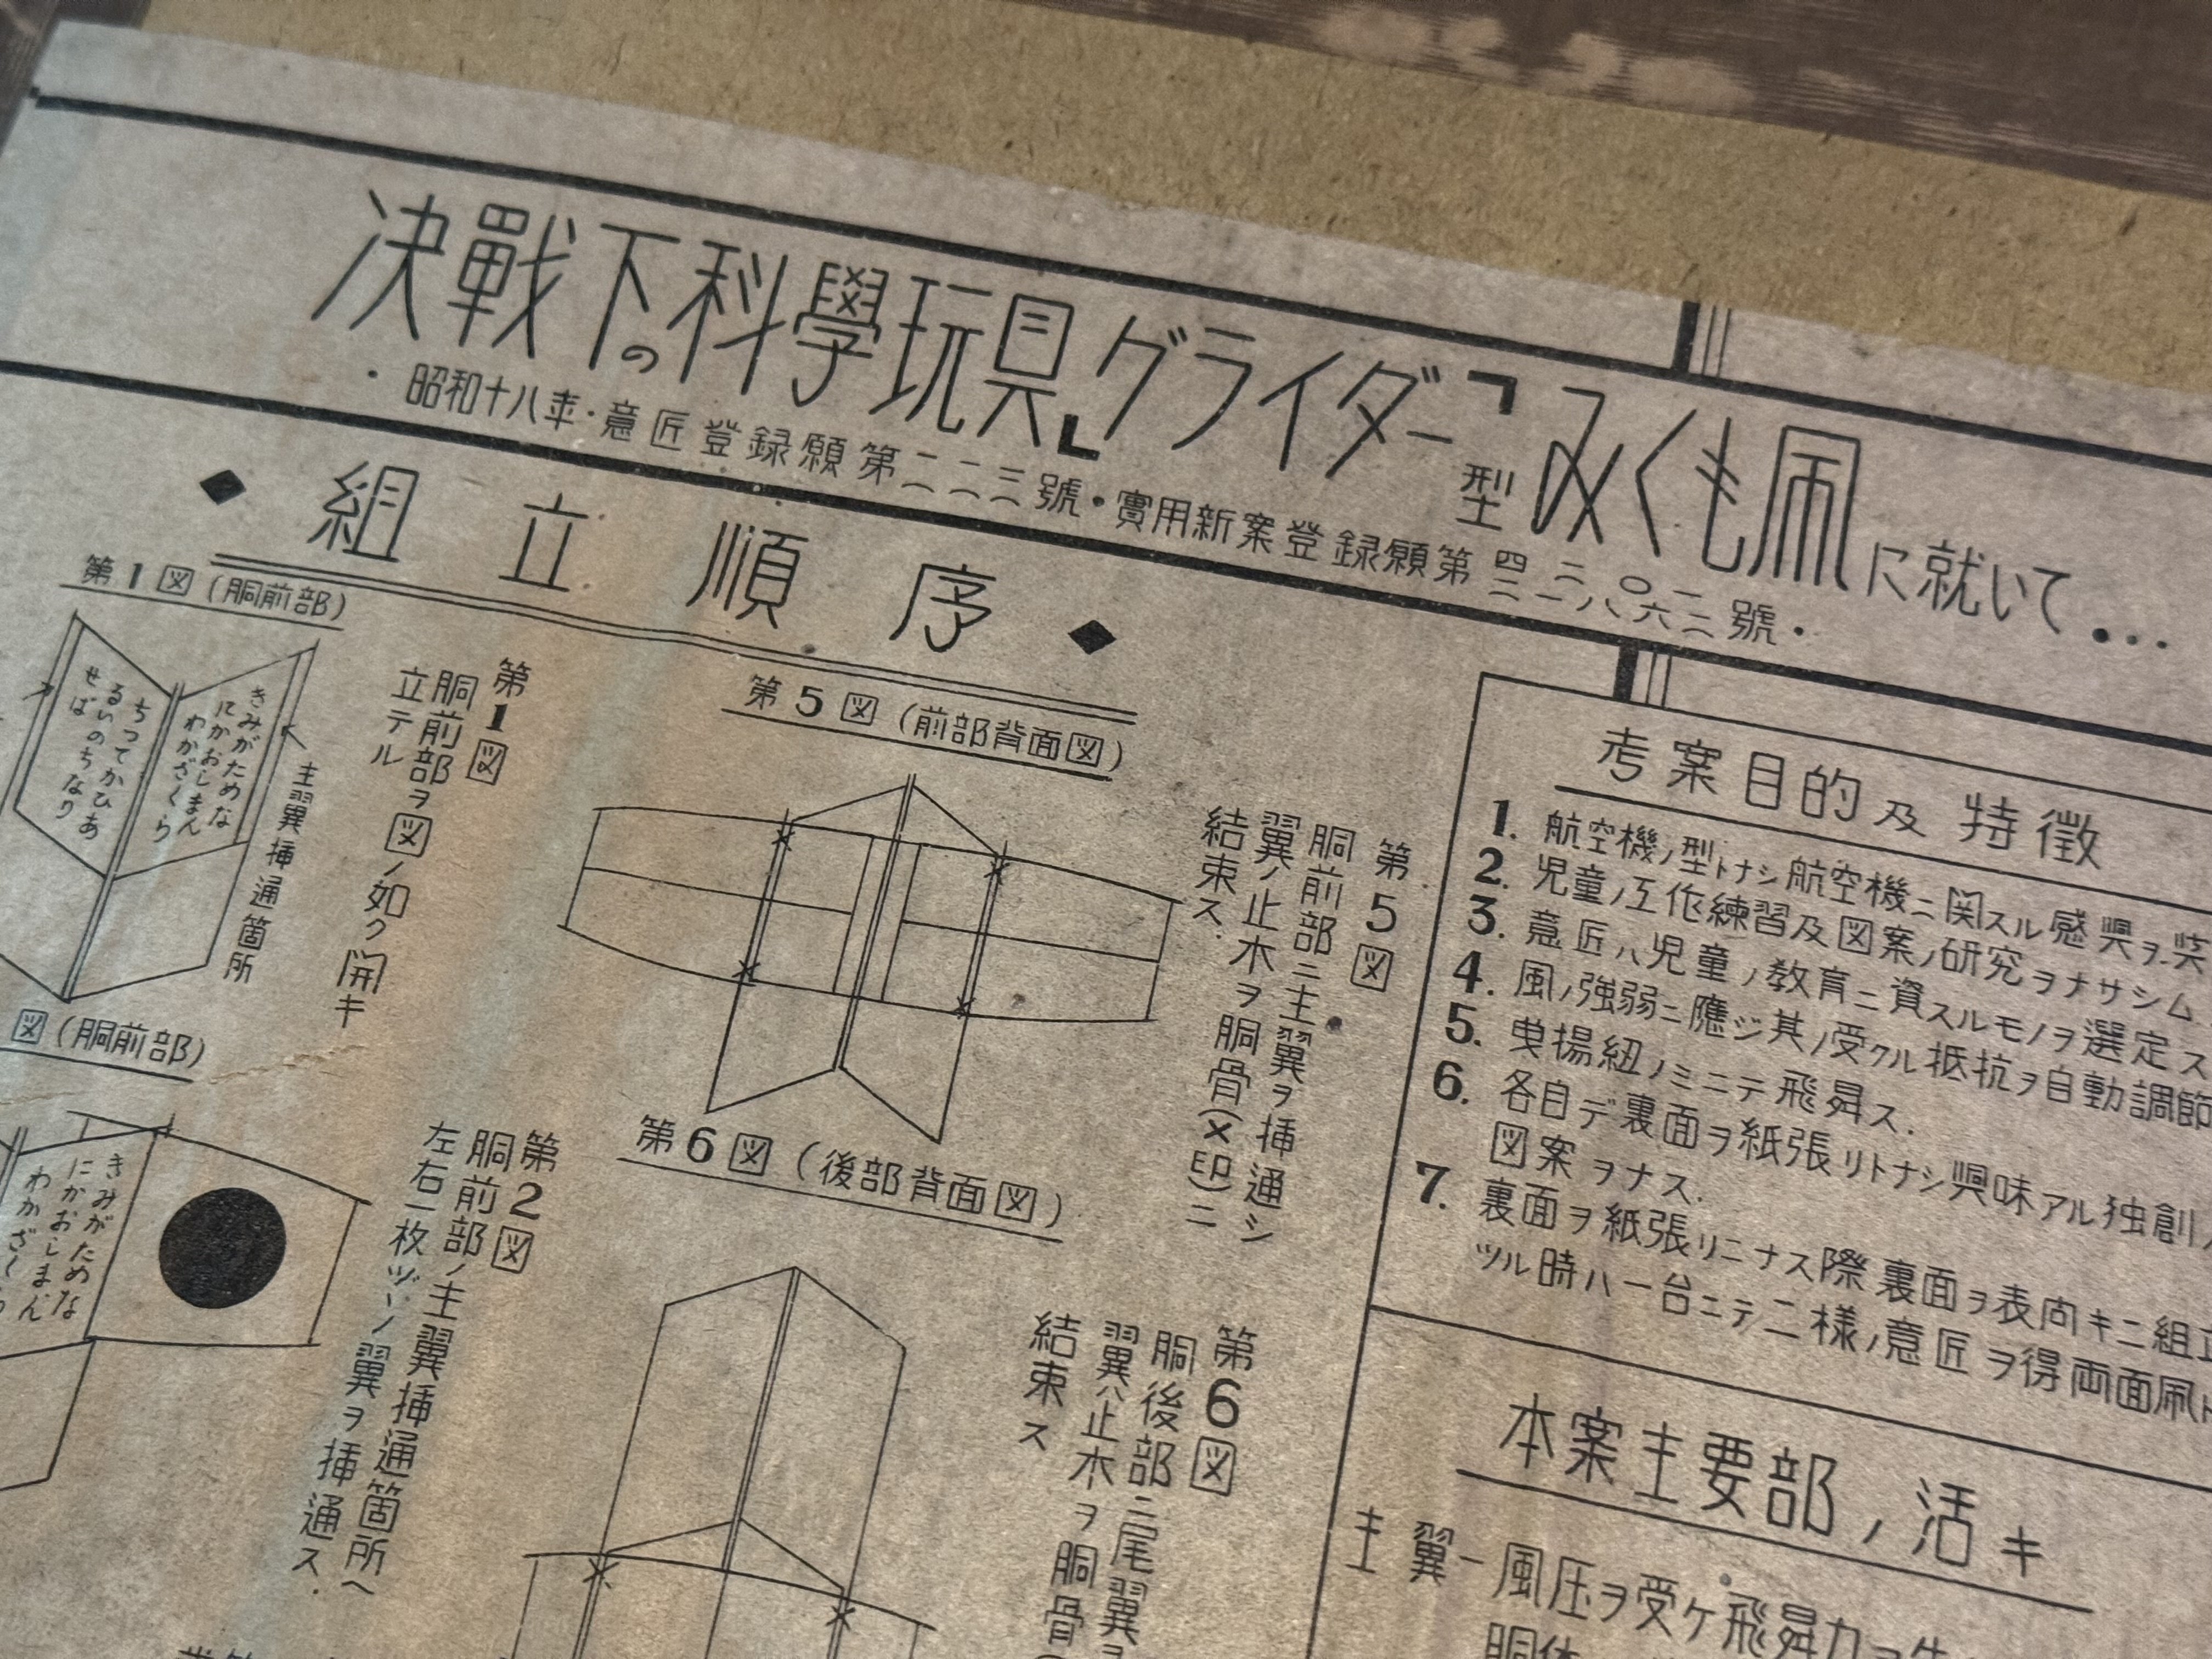 決戰下の科學玩具「グライダー」型みくも凧に就いて…
・昭和十八年・意匠登録願第一二一二三號・實用新案登録願第
號・
◆組立順序◆
第1図(胴前部)
きみがためな
にかおしまん
わかざくら
ちつてかひあ
るいのちなり
せば
主翼挿通箇所
第1図
胴前部ヲ図ノ如ク開キ
立テル
図(胴前部)
きみがためな
にかおしまん
わかざくら
第2図
胴前部ノ主翼挿通箇所ヘ
左右一枚ヅヽノ翼ヲ挿通ス.
第5図(前部背面図)
第5図
胴前部ニ主翼ヲ挿通シ
翼ノ止木ヲ胴骨(×印)ニ
結束ス.
第6図(後部背面図)
第6図
胴後部ニ尾翼ヲ
翼ハ止木ヲ胴骨(
結束ス
考案目的及特徴
1. 航空機ノ型トナシ航空機ニ関スル感興ヲ
2. 児童ノ工作練習及図案ノ研究ヲナサシム.
3. 意匠ハ児童ノ教育ニ資スルモノヲ選定ス
4. 風ノ強弱ニ應ジ其ノ受クル抵抗ヲ自動調節
5. 曳揚紐ノミニテ飛昇ス.
6. 各自デ裏面ヲ紙張リトナシ興味アル独創ノ
図案ヲナス.
7. 裏面ヲ紙張リニナス際裏面ヲ表向キニ組立
ツル時ハ一台ニテ二様ノ意匠ヲ得両面凧ト
本案主要部ノ活キ
主翼-風圧ヲ受ケ飛昇力ヲ
胴体